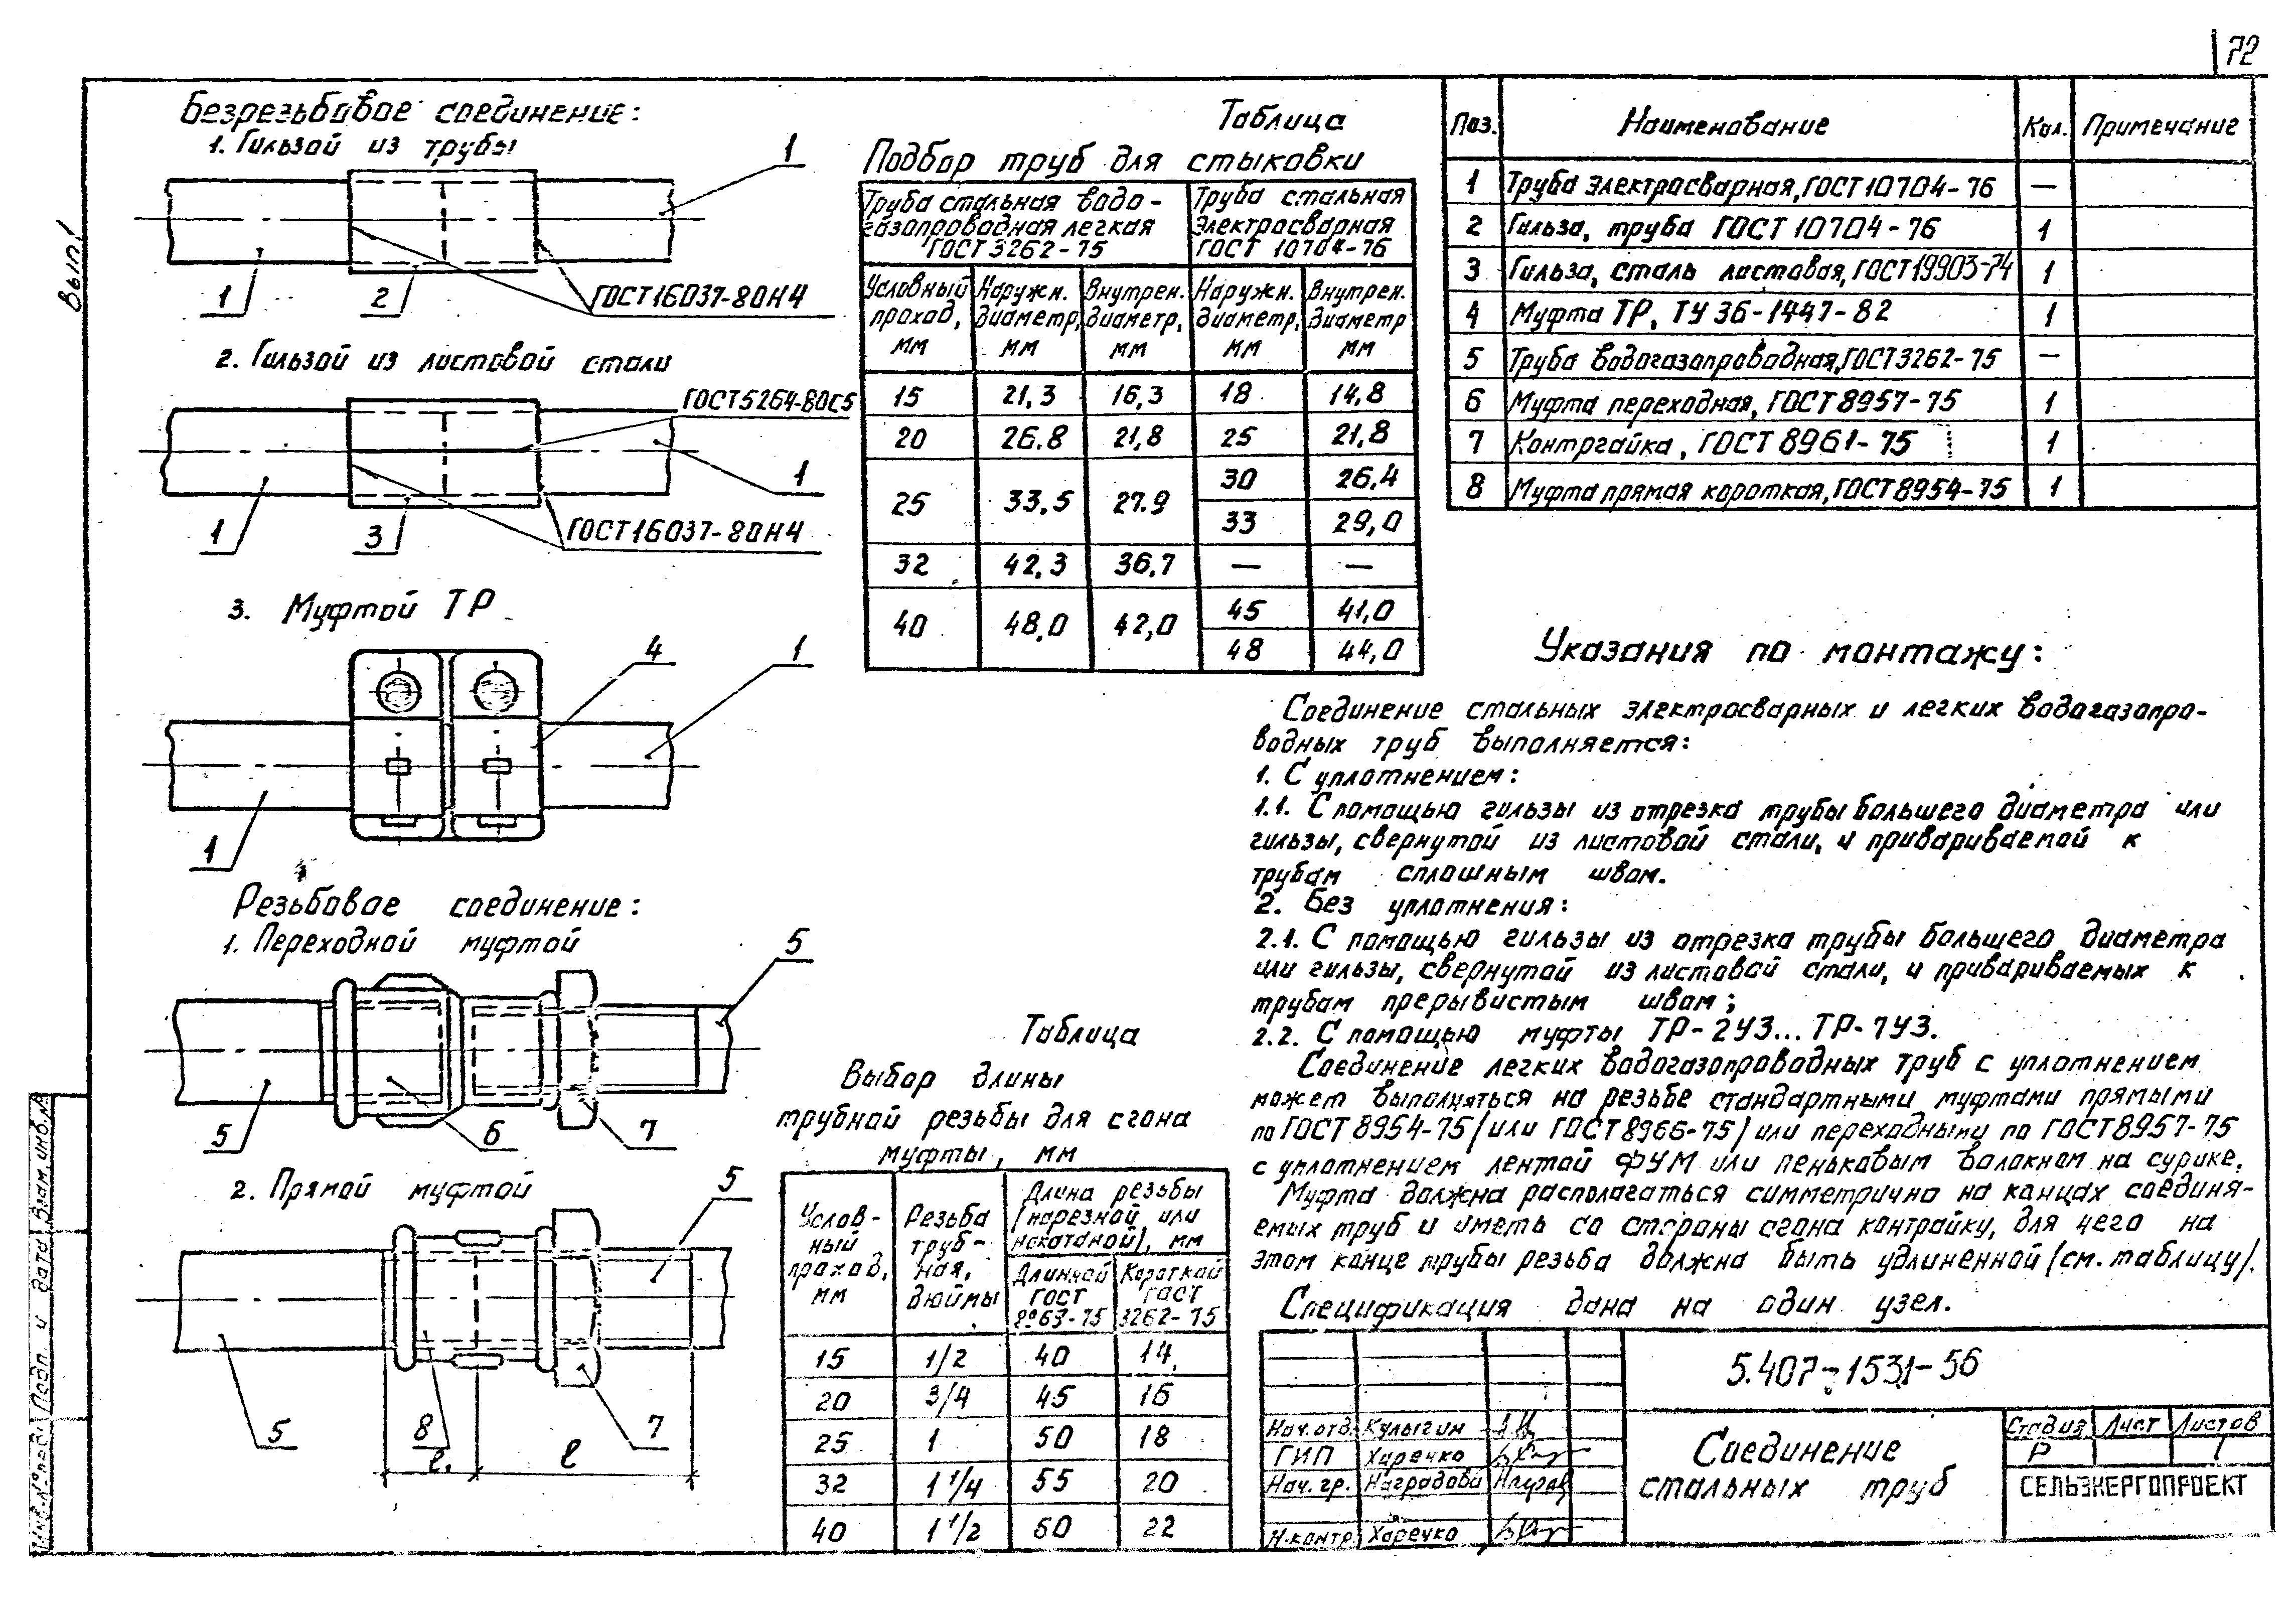 72
Вып.1
Безрезьбовое соединение:
1. Гильзой из трубы
1
1
2
ГОСТ16037-80Н4
2. Гильзой из листовой стали
ГОСТ5264-80С5
1
1
3
ГОСТ16037-80Н4
3. Муфтой ТР
4
1
1
Резьбовое соединение:
1. Переходной муфтой
5
5
6
7
2. Прямой муфтой
5
5
8
7
ℓ₁
ℓ
Таблица
Подбор труб для стыковки
Труба стальная водо-
газопроводная легкая
ГОСТ 3262-75
Труба стальная
электросварная
ГОСТ 10704-76
Условный проход, мм
Наружн. диаметр, мм
Внутрен. диаметр, мм
Наружн. диаметр, мм
Внутрен. диаметр мм
15 21,3 16,3 18 14,8
20 26.8 21,8 25 21,8
25 33,5 27.9 30 26,4
33 29,0
32 42,3 36,7 — —
40 48,0 42,0 45 41,0
48 44,0
Поз. Наименование Кол. Примечание
1 Труба электросварная, ГОСТ 10704-76 —
2 Гильза, труба ГОСТ 10704-76 1
3 Гильза, сталь листовая, ГОСТ19903-74 1
4 Муфта ТР, ТУ 36-1447-82 1
5 Труба водогазопроводная, ГОСТ3262-75 —
6 Муфта переходная, ГОСТ 8957-75 1
7 Контргайка, ГОСТ 8961-75 1
8 Муфта прямая короткая, ГОСТ8954-75 1
Указания по монтажу:
Соединение стальных электросварных и легких водогазопро-
водных труб выполняется:
1. С уплотнением:
1.1. С помощью гильзы из отрезка трубы большего диаметра или
гильзы, свернутой из листовой стали, и привариваемой к
трубам сплошным швом.
2. Без уплотнения:
2.1. С помощью гильзы из отрезка трубы большего диаметра
или гильзы, свернутой из листовой стали, и привариваемых к
трубам прерывистым швом;
2.2. С помощью муфты ТР-2У3...ТР-7У3.
Соединение легких водогазопроводных труб с уплотнением
может выполняться на резьбе стандартными муфтами прямыми
по ГОСТ 8954-75 /или ГОСТ 8966-75/ или переходными по ГОСТ 8957-75
с уплотнением лентой ФУМ или пеньковым волокном на сурике.
Муфта должна располагаться симметрично на концах соединя-
емых труб и иметь со стороны сгона контрайку, для чего на
этом конце трубы резьба должна быть удлиненной /см. таблицу/.
Спецификация дана на один узел.
Таблица
Выбор длины
трубной резьбы для сгона
муфты, мм
Услов-
ный
проход,
мм
Резьба
труб-
ная,
дюймы
Длина резьбы
/нарезной или
накатаной/, мм
Длинной
ГОСТ
8963-75
Короткой
ГОСТ
3262-75
15 1/2 40 14
20 3/4 45 16
25 1 50 18
32 1 1/4 55 20
40 1 1/2 60 22
5.407-153.1-56
Нач. отд. Кулыгин
ГИП Харечко
Нач. гр. Наградова
Н.контр. Харечко
Соединение
стальных труб
Стадия Лист Листов
Р 1
СЕЛЬЭНЕРГОПРОЕКТ
Взам. инв. №
Подп. и дата
Инв. № подл.